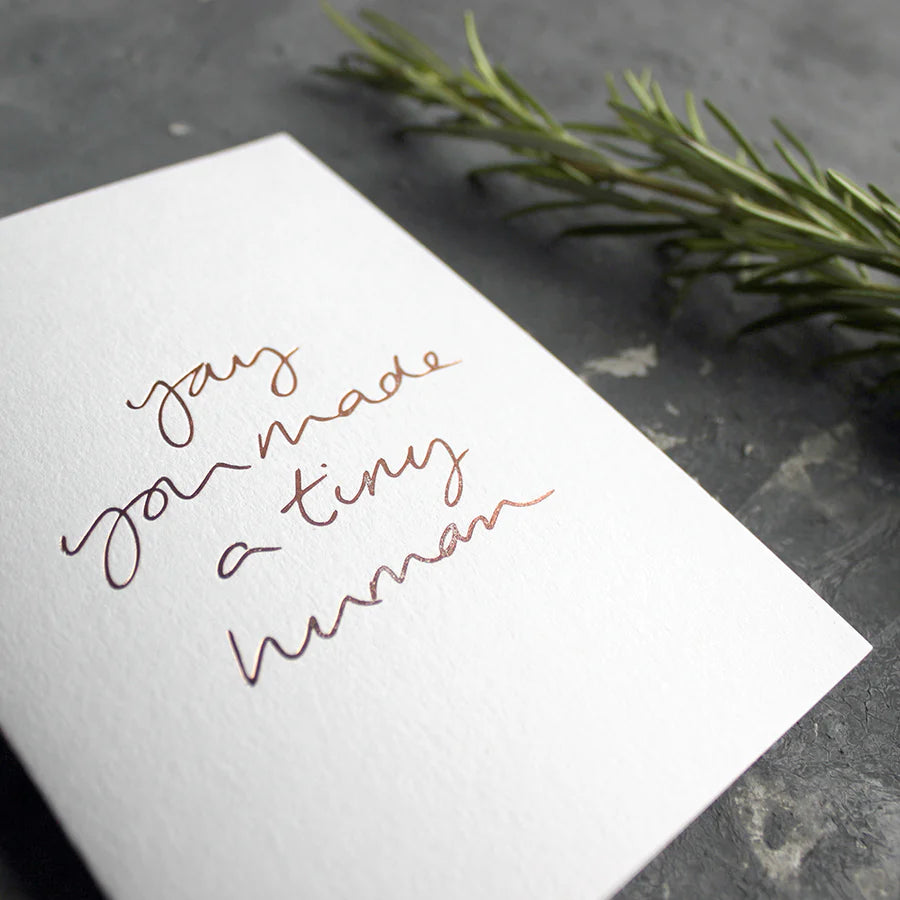 yay
you made
a tiny
human